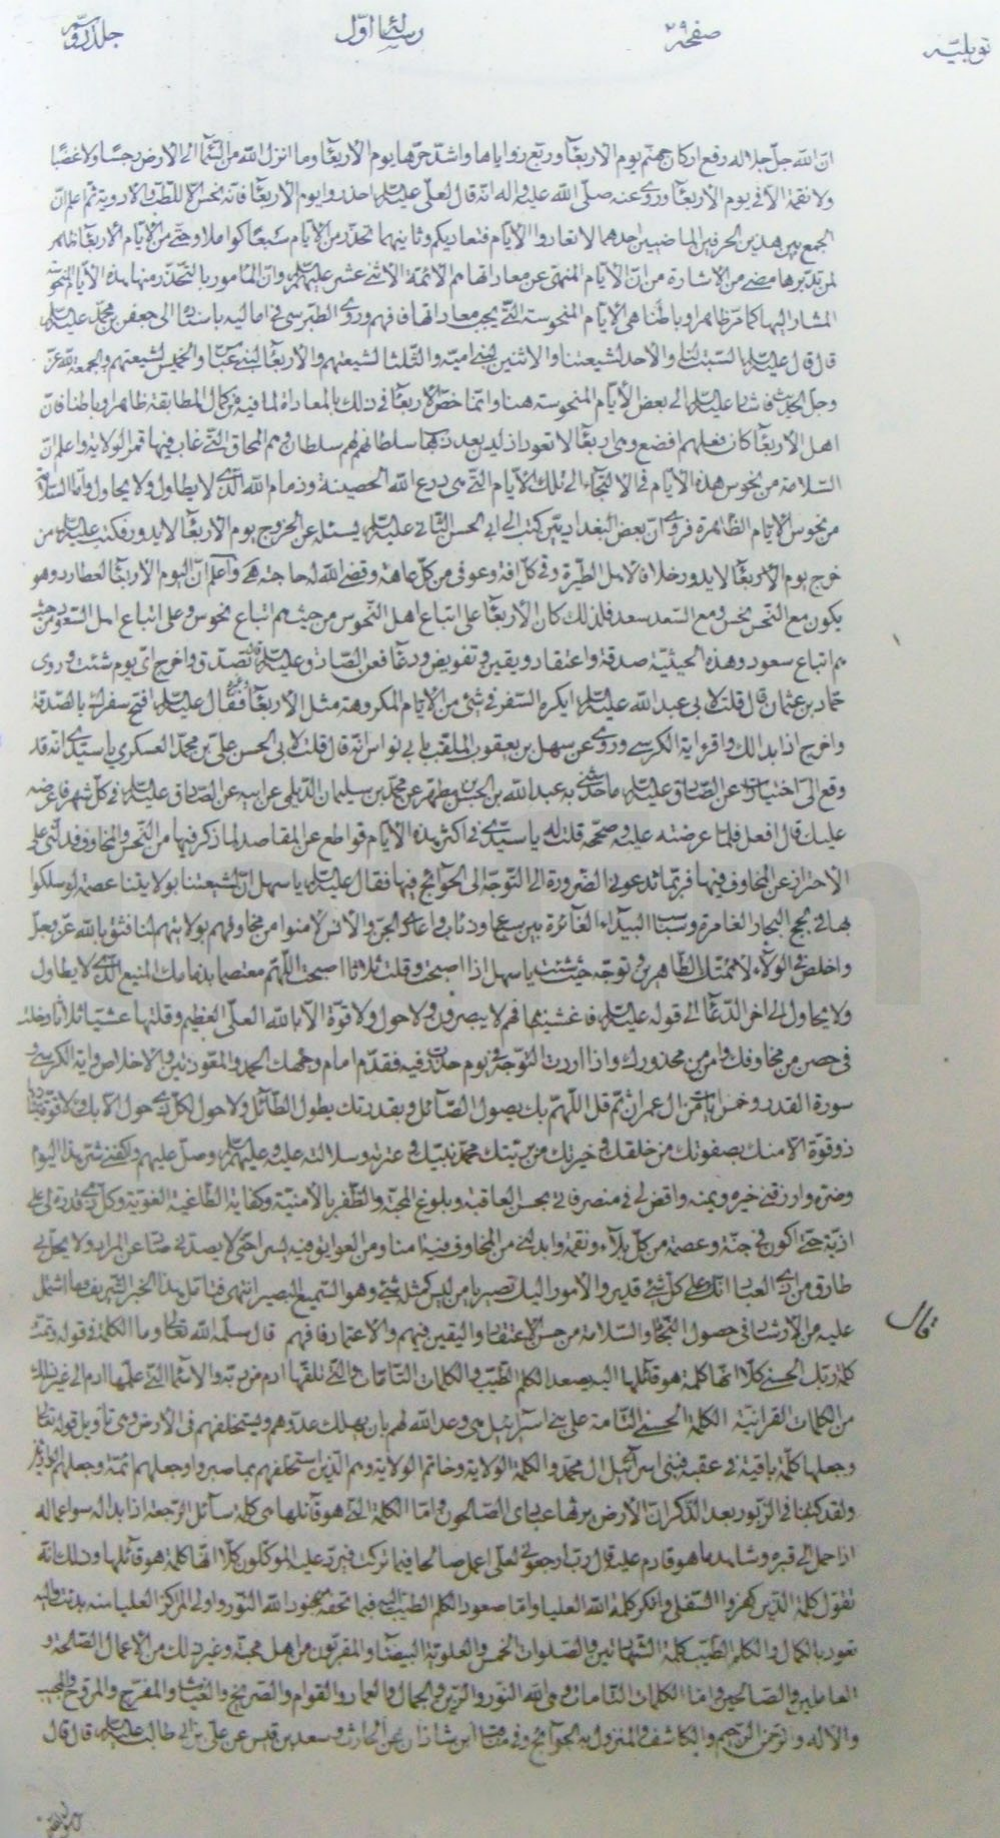 توبلیّه صفحه ٢٩ رسالهٔ اوّل جلد دویّم
انّ الله جلّ جلاله رفع ارکان جهنّم یوم الاربعآ و ربّع زوایاها و اشدّ حرّها یوم الاربعآ وما انزل الله من السّمآ الی الارض رجسًا ولا غضبًا
ولا نقمة الا فی یوم الاربعآ وروی عنه صلّی الله علیه واله انّه قال لعلّی علیه السّلم احذروا یوم الاربعآ فانّه نحس الا للطّب والادویة ثم اعلم انّ
الجمع بین هذین الخبرین الماضیین احدهما لا تعادوا الایّام فتعادیکم وثانیهما تحذّر من الایّام سبعًا کواملا وحتّی من الایّام الاربعآ ظاهر
لمن تدبّرها مضی من الاشارة من انّ الایّام المنهیّ عن معاداتها هم الائمّة الاثنی عشر علیهم السّلم وانّ المامور بالتّحذّر منها هذه الایّام النّحوسة
المشار الیها کما مرّ ظاهرا وباطنا هی الایّام المنحوسة الّتی یجب معاداتها فافهم وروی الطّبرسی فی امالیه باسناده الی جعفر بن محمّد علیه السّلم
قال قال علیه السّلم السّبت لنا والاحد لشیعتنا والاثنین لبنی امیّة والثّلثا لشیعتهم والاربعآ لبنی عبّاس والخمیس لشیعتهم والجمعة لله عزّ
وجلّ الحدیث فاشار علیه السّلم الی بعض الایّام المنحوسة هنا وانّما خصّ الاربعآ فی ذلک بالمعاداة لما فیه من کمال المطابقة ظاهرا وباطنا فانّ
اهل الاربعآ کان فعلهم افضع وهی اربعآ لا تعود اذ لیس بعد ذهاب سلطانهم لهم سلطان وهم المحاق الّتی غاب فیها قمر الولایة واعلم انّ
السّلامة من نحوس هذه الایّام فی الالتجآء الی تلک الایّام الّتی هی درع الله الحصینة وذمام الله الّذی لا یطاول ولا یحاول وامّا السّلامة
من نحوس الایّام الظّاهرة فروی انّ بعض البغدادیّین کتب الی ابی الحسن الثّانی علیه السّلم یسئله عن الخروج یوم الاربعآ لا یدور فکتب علیه السّلم من
خرج یوم الاربعآ لا یدور خلافا لاهل الطّیرة وقی کلّ افة وعوفی من کلّ عاهة وقضی الله له حاجته هی واعلم انّ الیوم الاربعآ لعطارد وهو
یکون مع النّحس نحس ومع السّعد سعد فلذلک کان الاربعآ علی اتباع اهل النّحوس من حیث هم اتباع نحوس وعلی اتباع اهل السّعود من حیث
هم اتباع سعود وهذه الحیثیّة صدقة واعتقاد ویقین وتفویض ودعآ فعن الصّادق علیه السّلم تصدّق واخرج ایّ یوم شئت وروی
حمّاد بن عثمان قال قلت لابی عبد الله علیه السّلم ایکره السّفر فی شئ من الایّام المکروهة مثل الاربعآ وغیره فقال علیه السّلم افتح سفرک بالصّدقة
واخرج اذا بدا لک واقرء ایة الکرسی وروی عن سهل بن یعقوب الملقّب بابی نواس انّه قال قلت لابی الحسن علیّ بن محمّد العسکری یا سیّدی انّه قد
وقع الیّ اختیارات عن الصّادق علیه السّلم ما حدّثنی به عبد الله بن مطهّر عن محمّد بن سلیمان الدّیلمی عن ابیه عن الصّادق علیه السّلم فی کلّ شهر فاعرضه
علیک قال افعل فلمّا عرضته علیه وصحّحه قلت له یا سیّدی فی اکثر هذه الایّام قواطع عن المقاصد لما ذکر فیها من النّحس والمخاوف فدلّنی علی
الاحتراز عن المخاوف فیها فربّما تدعونی الضّرورة الی التّوجّه الی الحوائج فیها فقال علیه السّلم یا سهل انّ لشیعتنا بولایتنا عصمة لو سلکوا
بها فی لجج البحار الغامرة وسباسب البیدآء الغآئرة بین سباع وذئاب واعادی الجنّ والانس لامنوا من مخاوفهم بولایتهم لنا فثق بالله عزّ وجلّ
واخلص فی الولآء لائمّتک الطّاهرین وتوجّه حیث شئت یا سهل اذا اصبحت وقلت ثلاثا اصبحت اللّهمّ معتصما بذمامک المنیع الّذی لا یطاول
ولا یحاول الی اخر الدّعآ الی قوله علیه السّلم فاغشیناهم فهم لا یبصرون ولا حول ولا قوّة الّا بالله العلیّ العظیم وقلتها عشیّا ثلاثا حصلت
فی حصن من مخاوفک وامن من محذورک واذا اردت التّوجّه فی یوم حذّرت فیه فقدّم امام توجّهک الحمد والمعوّذتین والاخلاص وایة الکرسی و
سورة القدر وخمس ایات من ال عمران ثمّ قل اللّهمّ بک یصول الصّآئل وبقدرتک یطول الطّآئل ولا حول لکلّ ذی حول الّا بک ولا قوّة یمتازها
ذو قوّة الا منک بصفوتک من خلقک وخیرتک من بریّتک محمّد نبیّک وعترته وسلالته علیه وعلیهم السّلم وصلّ علیهم واکفنی شرّ هذا الیوم
وضرّه وارزقنی خیره ویمنه واقض لی فی منصرفاتی بحسن العاقبة وبلوغ المحبّة والظّفر بالامنیّة وکفایة الطّاغیة الغویّة وکلّ ذی قدرة لی علی
اذیّة حتّی اکون فی جنّة وعصمة من کلّ بلآء ونقمة وابدلنی من المخاوف فیه امنا ومن العوائق فیه یسرا حتّی لا یصدّنی صادّ عن المراد ولا یحلّ بی
طارق من اذی العباد انّک علی کلّ شئ قدیر والامور الیک تصیر یا من لیس کمثله شئ وهو السّمیع البصیر انتهی فتامّل هذا الخبر الشّریف وما اشتمل
علیه من الارشاد فی حصول النّجاة والسّلامة من حسن الاعتقاد والیقین فیهم والاعتماد فافهم قال سلّمه الله تعالی وما الکلمة فی قوله وتمّت
کلمة ربّک الحسنی کلّا انّها کلمة هو قآئلها الیه یصعد الکلم الطّیّب والکلمات التّامّات الّتی تلقّیها ادم من ربّه والاسمآء الّتی علّمها ادم الی غیر ذلک
من الکلمات القرانیّة الکلمة الحسنی التّامة علی بنی اسرآئیل هی وعد الله لهم بان یهلک عدوّهم ویستخلفهم فی الارض وهی تاویل قوله تعالی
وجعلها کلمة باقیة فی عقبه فبنی اسرآئیل ال محمّد والکلمة الولایة وخاتم الولایة وهم الّذین استخلفهم بما صبروا وجعلهم ائمّة وجعلهم الوارثین
ولقد کتبنا فی الزّبور بعد الذّکر انّ الارض یرثها عبادی الصّالحون وامّا الکلمة الّتی هو قآئلها هی کلمة سآئل الرّجعة اذا بدا له سوء اعماله
اذا حمل الی قبره وشاهد ما هو قادم علیه قال ربّ ارجعونی لعلّی اعمل صالحا فیما ترکت فیردّ علیه الموکّلون کلّا انّها کلمة هو قآئلها وذلک انّه
تفوّل کلمة الّذین کفروا السّفلی وانکر کلمة الله العلیا وامّا صعود الکلم الطّیّب الیه فیما تحفّه بجنود الله النّور واولی المراکز العلیا منه بدئت والیه
تعود بالکمال والکلم الطّیّب کلمة الشّهادتین والصّلوات الخمس والعلویّة البیضآء والمقرّبون من اهل محبّته وغیر ذلک من الاعمال الصّالحة و
العاملین والصّالحین وامّا الکلمات التّامّات وهی الله النّور والزّین والجمال والعماد والقوام والصّریخ والغیاث والمفرّج والمروّح والمجیب
والاله والرّحمن الرّحیم والکاشف والمنزول به الحوآئج وفی مناقب ابن شاذان عن الحارث وسعد بن قیس عن علیّ بن ابی طالب علیه السّلم قال قال
قال